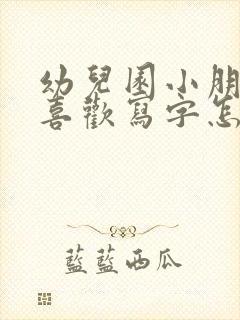 幼兒園小朋
喜歡寫字怎
藍藍西瓜